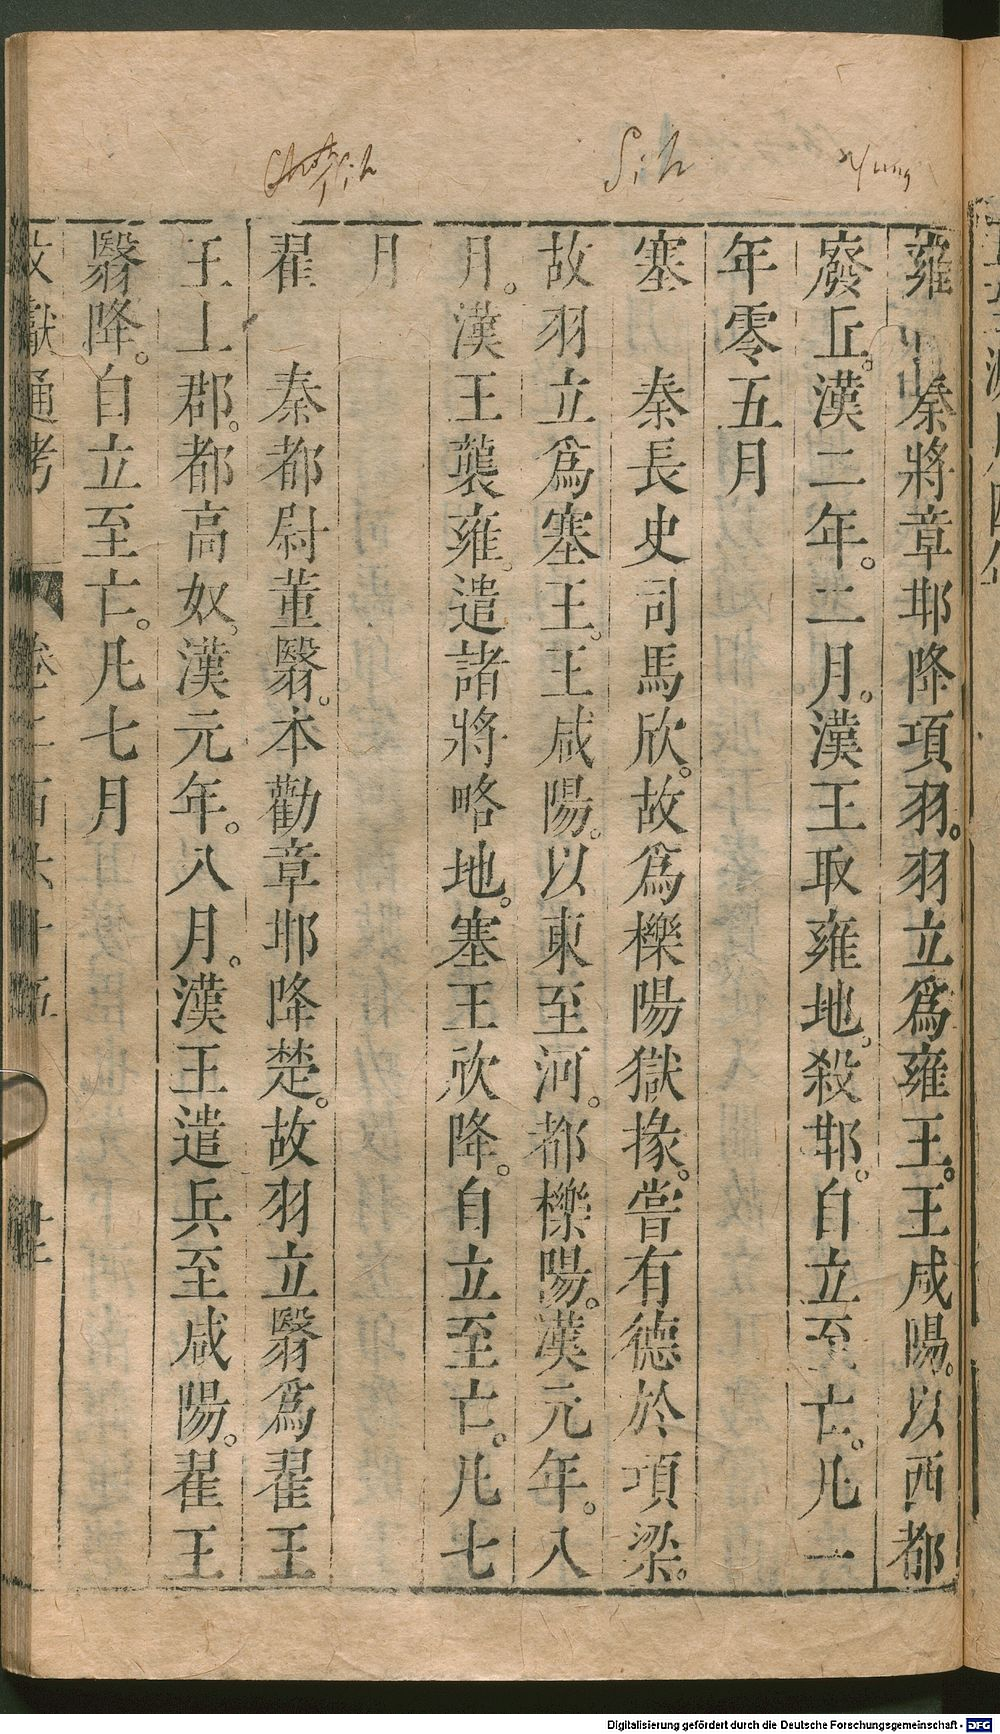 Yung
Sih
雍　秦將章邯降項羽。羽立爲雍王。王咸陽。以西都
廢丘。漢二年。二月。漢王取雍地。殺邯。自立至亡。凡一
年零五月
塞　秦長史司馬欣。故爲櫟陽獄掾。嘗有德於項梁。
故羽立爲塞王。王咸陽。以東至河。都櫟陽。漢元年。八
月。漢王襲雍。遣諸將略地。塞王欣降。自立至亡。凡七
月
翟　秦都尉董翳。本勸章邯降楚。故羽立翳爲翟王
王上郡。都高奴。漢元年。八月。漢王遣兵至咸陽。翟王
翳降。自立至亡。凡七月
文獻通考　卷二百六十五
Digitalisierung gefördert durch die Deutsche Forschungsgemeinschaft - DFG